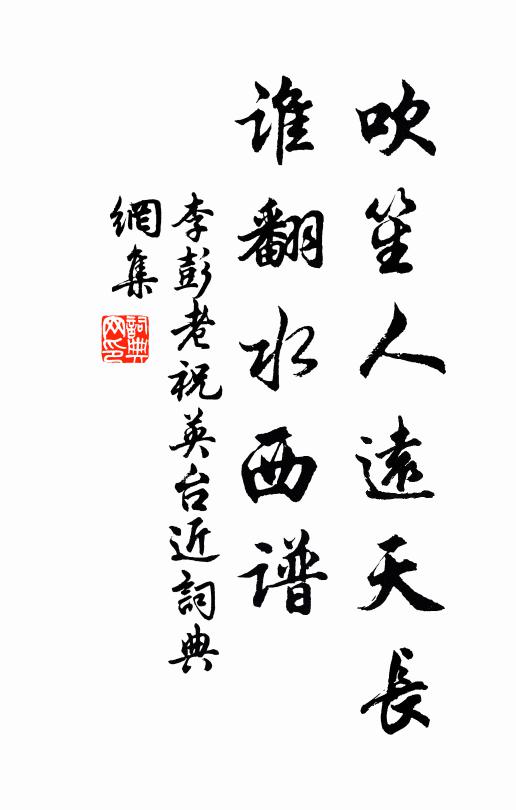 吹笙人遠天長
谁翻水西谱
李彭老祝英台近詞典
網集
詞典
网印